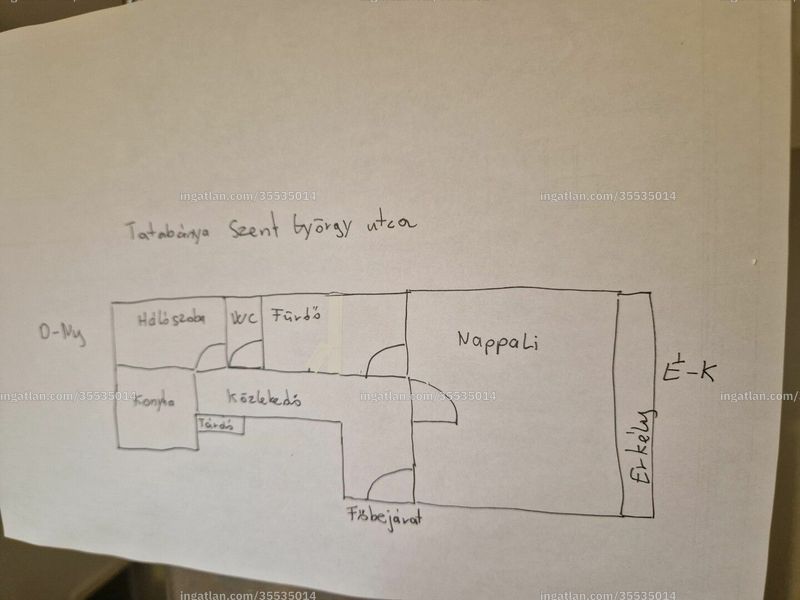 ingatlan.com/35535014
ingatlan.com/35535014
Tatabánya Szent György utca
Hálószoba
WC
Fürdő
Nappali
D-Ny
É-K
Konyha
Közlekedő
Tároló
Erkély
ingatlan.com/35535014
ingatlan.com/35535014
ingatlan.com/35535014
Főbejárat
ingatlan.com/35535014
ingatlan.com/35535014